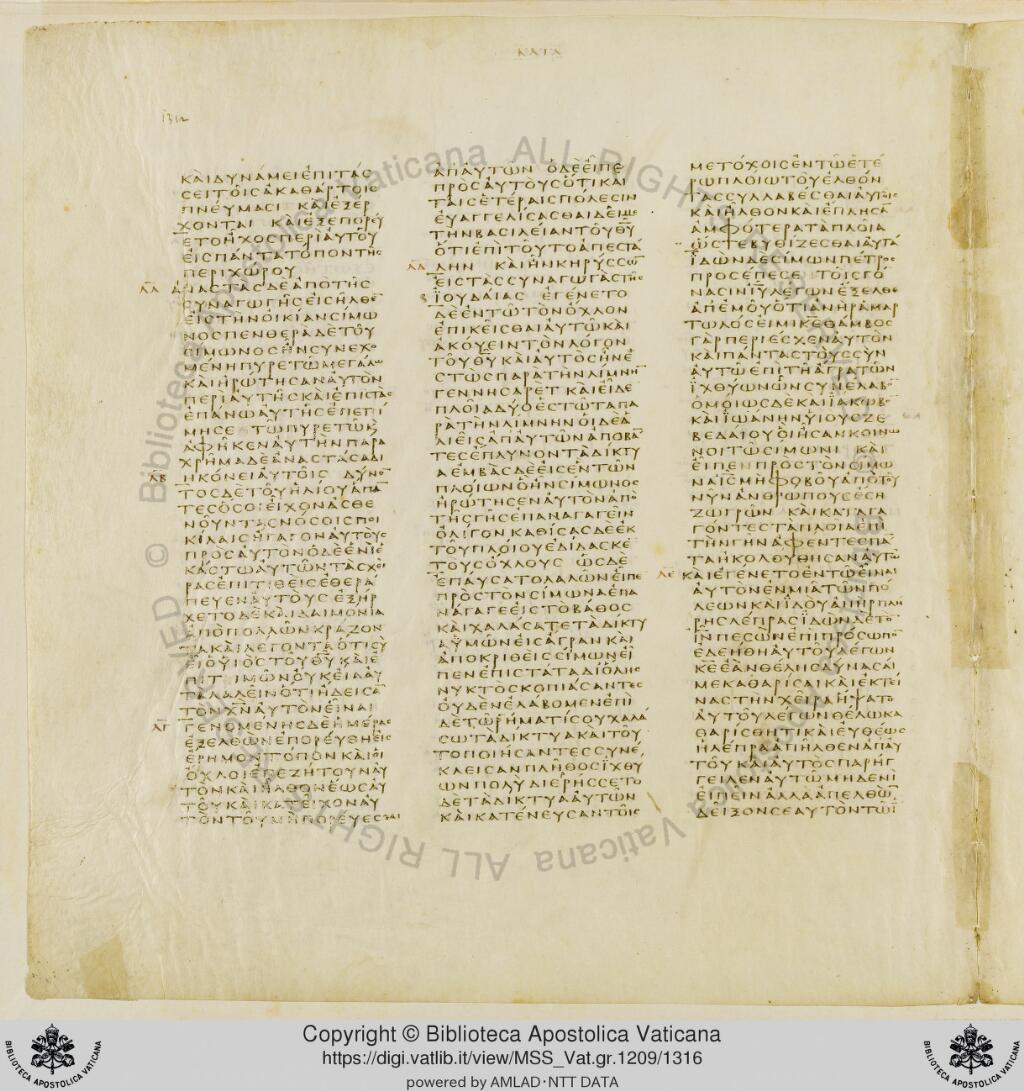 ΚΑΤΑ
1316
ΚΑΙΔΥΝΑΜΕΙΕΠΙΤΑϹ
ϹΕΙΤΟΙϹΑΚΑΘΑΡΤΟΙϹ
ΠΝΕΥΜΑϹΙ ΚΑΙΕΞΕΡ
ΧΟΝΤΑΙ ΚΑΙΕΞΕΠΟΡΕΥ
ΕΤΟΗΧΟϹΠΕΡΙΑΥΤΟΥ
ΕΙϹΠΑΝΤΑΤΟΠΟΝΤΗϹ
ΠΕΡΙΧΩΡΟΥ
ΛΑ ΑΝΑϹΤΑϹΔΕΑΠΟΤΗϹ
ϹΥΝΑΓΩΓΗϹΕΙϹΗΛΘΕ
ΕΙϹΤΗΝΟΙΚΙΑΝϹΙΜΩ
ΝΟϹΠΕΝΘΕΡΑΔΕΤΟΥ
ϹΙΜΩΝΟϹΗΝϹΥΝΕΧΟ
ΜΕΝΗΠΥΡΕΤΩΜΕΓΑΛΩ
ΚΑΙΗΡΩΤΗϹΑΝΑΥΤΟΝ
ΠΕΡΙΑΥΤΗϹΚΑΙΕΠΙϹΤΑϹ
ΕΠΑΝΩΑΥΤΗϹΕΠΕΤΙ
ΜΗϹΕ ΤΩΠΥΡΕΤΩΚ
ΑΦΗΚΕΝΑΥΤΗΝΠΑΡΑ
ΧΡΗΜΑΔΕΑΝΑϹΤΑϹΑΔΙ
ΛΒ ΗΚΟΝΕΙΑΥΤΟΙϹ ΔΥΝΟ
ΤΟϹΔΕΤΟΥΗΛΙΟΥΑΠΑ
ΤΕϹΟϹΟΙΕΙΧΟΝΑϹΘΕ
ΝΟΥΝΤΑϹΝΟϹΟΙϹΠΟΙ
ΚΙΛΑΙϹΗΓΑΓΟΝΑΥΤΟΥϹ
ΠΡΟϹΑΥΤΟΝΟΔΕΕΝΙΕ
ΚΑϹΤΩΑΥΤΩΝΤΑϹΧΕΙ
ΡΑϹΕΠΙΤΙΘΕΙϹΕΘΕΡΑ
ΠΕΥΕΝΑΥΤΟΥϹΕΞΗΡ
ΧΕΤΟΔΕΚΑΙΔΑΙΜΟΝΙΑ
ΑΠΟΠΟΛΛΩΝΚΡΑΖΟΝ
ΤΑΚΑΙΛΕΓΟΝΤΑΟΤΙϹΥ
ΕΙΟΥΙΟϹΤΟΥΘΥ ΚΑΙΕ
ΠΙΤΙΜΩΝΟΥΚΕΙΑΑΥ
ΤΑΛΑΛΕΙΝΟΤΙΗΔΕΙϹΑ
ΤΟΝΧΝΑΥΤΟΝΕΙΝΑΙ
ΛΓ ΓΕΝΟΜΕΝΗϹΔΕΗΜΕΡΑϹ
ΕΞΕΛΘΩΝΕΠΟΡΕΥΘΗΕΙϹ
ΕΡΗΜΟΝΤΟΠΟΝΚΑΙΟΙ
ΟΧΛΟΙΕΠΕΖΗΤΟΥΝΑΥ
ΤΟΝΚΑΙΗΛΘΟΝΕΩϹΑΥ
ΤΟΥΚΑΙΚΑΤΕΙΧΟΝΑΥ
ΤΟΝΤΟΥΜΗΠΟΡΕΥΕϹΘΑΙ
ΑΠΑΥΤΩΝ ΟΔΕΕΙΠΕ
ΠΡΟϹΑΥΤΟΥϹΟΤΙΚΑΙ
ΤΑΙϹΕΤΕΡΑΙϹΠΟΛΕϹΙΝ
ΕΥΑΓΓΕΛΙϹΑϹΘΑΙΔΕΙΜΕ
ΤΗΝΒΑϹΙΛΕΙΑΝΤΟΥΘΥ
ΟΤΙΕΠΙΤΟΥΤΟΑΠΕϹΤΑ
ΛΔ ΛΗΝ ΚΑΙΗΝΚΗΡΥϹϹΩ
ΕΙϹΤΑϹϹΥΝΑΓΩΓΑϹΤΗϹ
ΙΟΥΔΑΙΑϹ ΕΓΕΝΕΤΟ
ΔΕΕΝΤΩΤΟΝΟΧΛΟΝ
ΕΠΙΚΕΙϹΘΑΙΑΥΤΩΚΑΙ
ΑΚΟΥΕΙΝΤΟΝΛΟΓΟΝ
ΤΟΥΘΥΚΑΙΑΥΤΟϹΗΝΕ
ϹΤΩϹΠΑΡΑΤΗΝΛΙΜΝΗ
ΓΕΝΝΗϹΑΡΕΤ ΚΑΙΕΙΔΕ
ΠΛΟΙΑΔΥΟΕϹΤΩΤΑΠΑ
ΡΑΤΗΝΛΙΜΝΗΝΟΙΔΕΑ
ΛΙΕΙϹΑΠΑΥΤΩΝΑΠΟΒΑ
ΤΕϹΕΠΛΥΝΟΝΤΑΔΙΚΤΥ
ΑΕΜΒΑϹΔΕΕΙϹΕΝΤΩΝ
ΠΛΟΙΩΝΟΗΝϹΙΜΩΝΟϹ
ΗΡΩΤΗϹΕΝΑΥΤΟΝΑΠΟ
ΤΗϹΓΗϹΕΠΑΝΑΓΑΓΕΙΝ
ΟΛΙΓΟΝΚΑΘΙϹΑϹΔΕΕΚ
ΤΟΥΠΛΟΙΟΥΕΔΙΔΑϹΚΕ
ΤΟΥϹΟΧΛΟΥϹ ΩϹΔΕ
ΕΠΑΥϹΑΤΟΛΑΛΩΝΕΙΠΕ
ΠΡΟϹΤΟΝϹΙΜΩΝΑΕΠΑ
ΝΑΓΑΓΕΕΙϹΤΟΒΑΘΟϹ
ΚΑΙΧΑΛΑϹΑΤΕΤΑΔΙΚΤΥ
ΑΥΜΩΝΕΙϹΑΓΡΑΝΚΑΙ
ΑΠΟΚΡΙΘΕΙϹϹΙΜΩΝΕΙ
ΠΕΝΕΠΙϹΤΑΤΑΔΙΟΛΗϹ
ΝΥΚΤΟϹΚΟΠΙΑϹΑΝΤΕϹ
ΟΥΔΕΝΕΛΑΒΟΜΕΝΕΠΙ
ΔΕΤΩΡΗΜΑΤΙϹΟΥΧΑΛΑ
ϹΩΤΑΔΙΚΤΥΑΚΑΙΤΟΥ
ΤΟΠΟΙΗϹΑΝΤΕϹϹΥΝΕ
ΚΛΕΙϹΑΝΠΛΗΘΟϹΙΧΘΥ
ΩΝΠΟΛΥΔΙΕΡΗϹϹΕΤΟ
ΔΕΤΑΔΙΚΤΥΑΑΥΤΩΝ
ΚΑΙΚΑΤΕΝΕΥϹΑΝΤΟΙϹ
ΜΕΤΟΧΟΙϹΕΝΤΩΕΤΕ
ΡΩΠΛΟΙΩΤΟΥΕΛΘΟΝ
ΤΑϹϹΥΛΛΑΒΕϹΘΑΙΑΥΤΟΙϹ
ΚΑΙΗΛΘΟΝΚΑΙΕΠΛΗϹΑ
ΑΜΦΟΤΕΡΑΤΑΠΛΟΙΑ
ΩϹΤΕΒΥΘΙΖΕϹΘΑΙΑΥΤΑ
ΙΔΩΝΔΕϹΙΜΩΝΠΕΤΡΟϹ
ΠΡΟϹΕΠΕϹΕ ΤΟΙϹΓΟ
ΝΑϹΙΝΙΥΛΕΓΩΝΕΞΕΛΘΕ
ΑΠΕΜΟΥΟΤΙΑΝΗΡΑΜΑΡ
ΤΩΛΟϹΕΙΜΙΚΕΘΑΜΒΟϹ
ΓΑΡΠΕΡΙΕϹΧΕΝΑΥΤΟΝ
ΚΑΙΠΑΝΤΑϹΤΟΥϹϹΥΝ
ΑΥΤΩΕΠΙΤΗΑΓΡΑΤΩΝ
ΙΧΘΥΩΝΩΝϹΥΝΕΛΑΒΟ
ΟΜΟΙΩϹΔΕΚΑΙΙΑΚΩΒΟ
ΚΑΙΙΩΑΝΗΝΥΙΟΥϹΖΕ
ΒΕΔΑΙΟΥΟΙΗϹΑΝΚΟΙΝΩ
ΝΟΙΤΩϹΙΜΩΝΙ ΚΑΙ
ΕΙΠΕΝΠΡΟϹΤΟΝϹΙΜΩ
ΝΑΙϹΜΗΦΟΒΟΥΑΠΟΤΟΥ
ΝΥΝΑΝΘΡΩΠΟΥϹΕϹΗ
ΖΩΓΡΩΝ ΚΑΙΚΑΤΑΓΑ
ΓΟΝΤΕϹΤΑΠΛΟΙΑΕΠΙ
ΤΗΝΓΗΝΑΦΕΝΤΕϹΠΑ
ΤΑΗΚΟΛΟΥΘΗϹΑΝΑΥΤΩ
ΛΕ ΚΑΙΕΓΕΝΕΤΟΕΝΤΩΕΙΝΑΙ
ΑΥΤΟΝΕΝΜΙΑΤΩΝΠΟ
ΛΕΩΝΚΑΙΙΔΟΥΑΝΗΡΠΛΗ
ΡΗϹΛΕΠΡΑϹΙΔΩΝΔΕΤΟ
ΙΝΠΕϹΩΝΕΠΙΠΡΟϹΩΠΟ
ΕΔΕΗΘΗΑΥΤΟΥΛΕΓΩΝ
ΚΕΕΑΝΘΕΛΗϹΔΥΝΑϹΑΙ
ΜΕΚΑΘΑΡΙϹΑΙΚΑΙΕΚΤΕΙ
ΝΑϹΤΗΝΧΕΙΡΑΗΨΑΤΟ
ΑΥΤΟΥΛΕΓΩΝΘΕΛΩΚΑ
ΘΑΡΙϹΘΗΤΙΚΑΙΕΥΘΕΩϹ
ΗΛΕΠΡΑΑΠΗΛΘΕΝΑΠΑΥ
ΤΟΥΚΑΙΑΥΤΟϹΠΑΡΗΓ
ΓΕΙΛΕΝΑΥΤΩΜΗΔΕΝΙ
ΕΙΠΕΙΝΑΛΛΑΑΠΕΛΘΩ
ΔΕΙΞΟΝϹΕΑΥΤΟΝΤΩΙ
© Biblioteca Apostolica Vaticana ALL RIGHTS RESERVED
Copyright © Biblioteca Apostolica Vaticana
https://digi.vatlib.it/view/MSS_Vat.gr.1209/1316
powered by AMLAD·NTT DATA
BIBLIOTECA APOSTOLICA VATICANA
BIBLIOTECA APOSTOLICA VATICANA